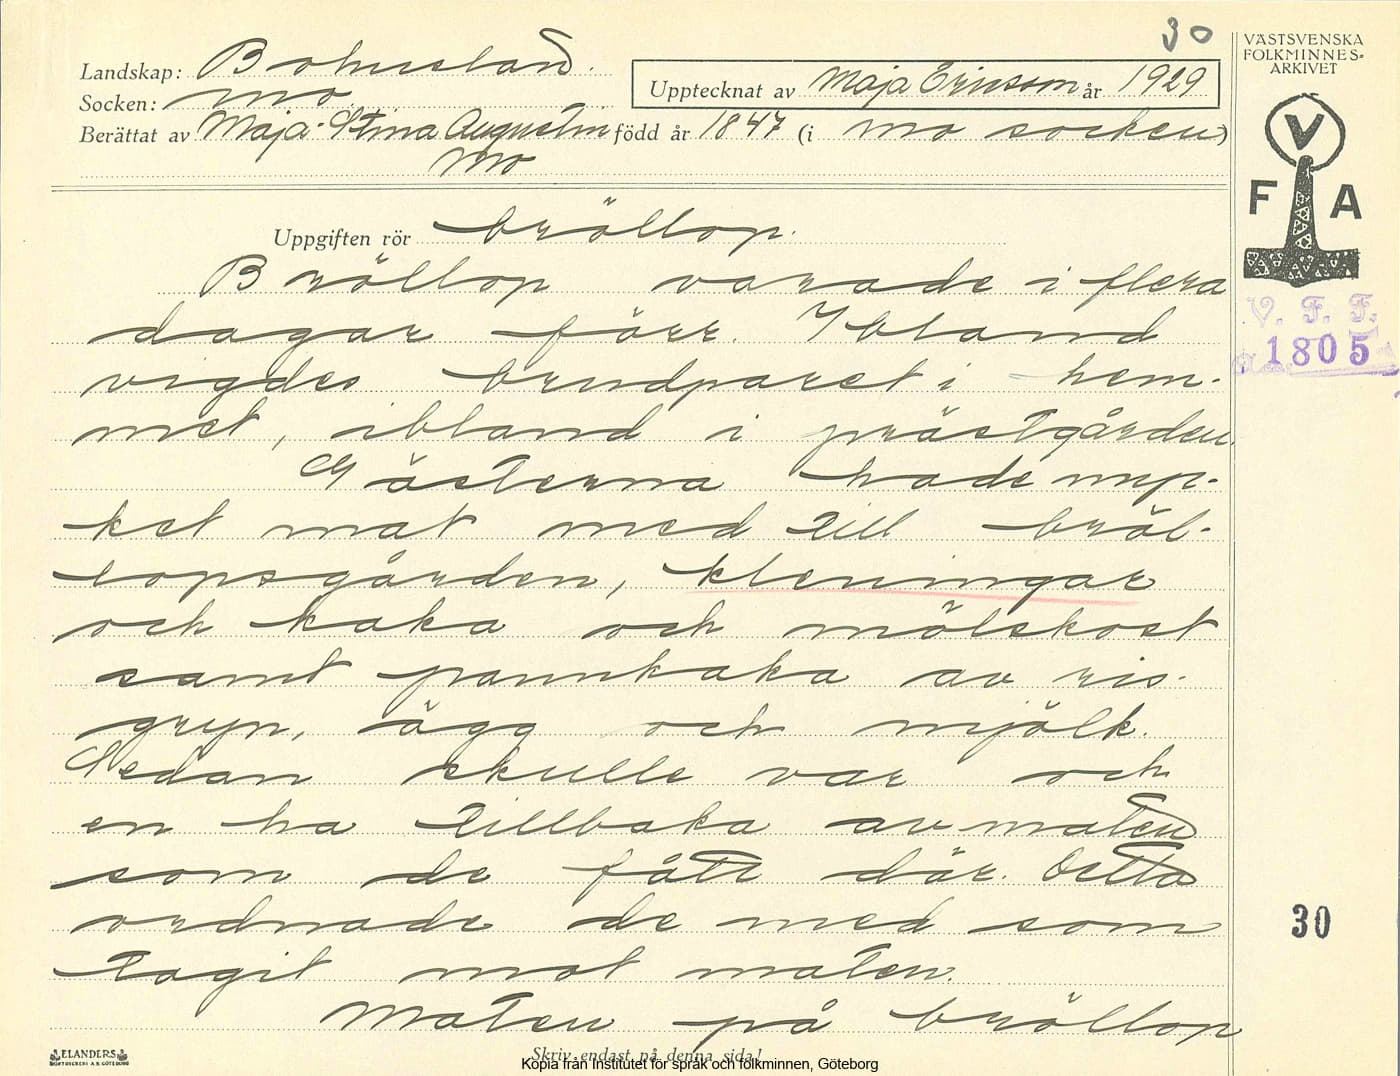 30
VÄSTSVENSKA
FOLKMINNES-
ARKIVET
Landskap: Bohuslän
Socken: Mo
Upptecknat av Maja Ericson år 1929
Berättat av Maja-Stina Augustin född år 1847 (i Mo socken)
Mo
V
F A
Uppgiften rör bröllop.
V. F. F.
1805
Bröllop varade i flera
dagar förr. Ibland
vigdes brudparet i hem-
met, ibland i prästgården.
Gästerna hade myc-
ket mat med till bröl-
lopsgården, kleningar
och kaka och mölskost
samt pannkaka av ris-
gryn, ägg och mjölk.
Sedan skulle var och
en ha tillbaka av maten
som de fått där. Detta
ordnade de med som
tagit mot maten.
Maten på bröllop
30
ELANDERS
BOKTRYCKERI A.B. GÖTEBORG
Skriv endast på denna sida!
Kopia från Institutet för språk och folkminnen, Göteborg